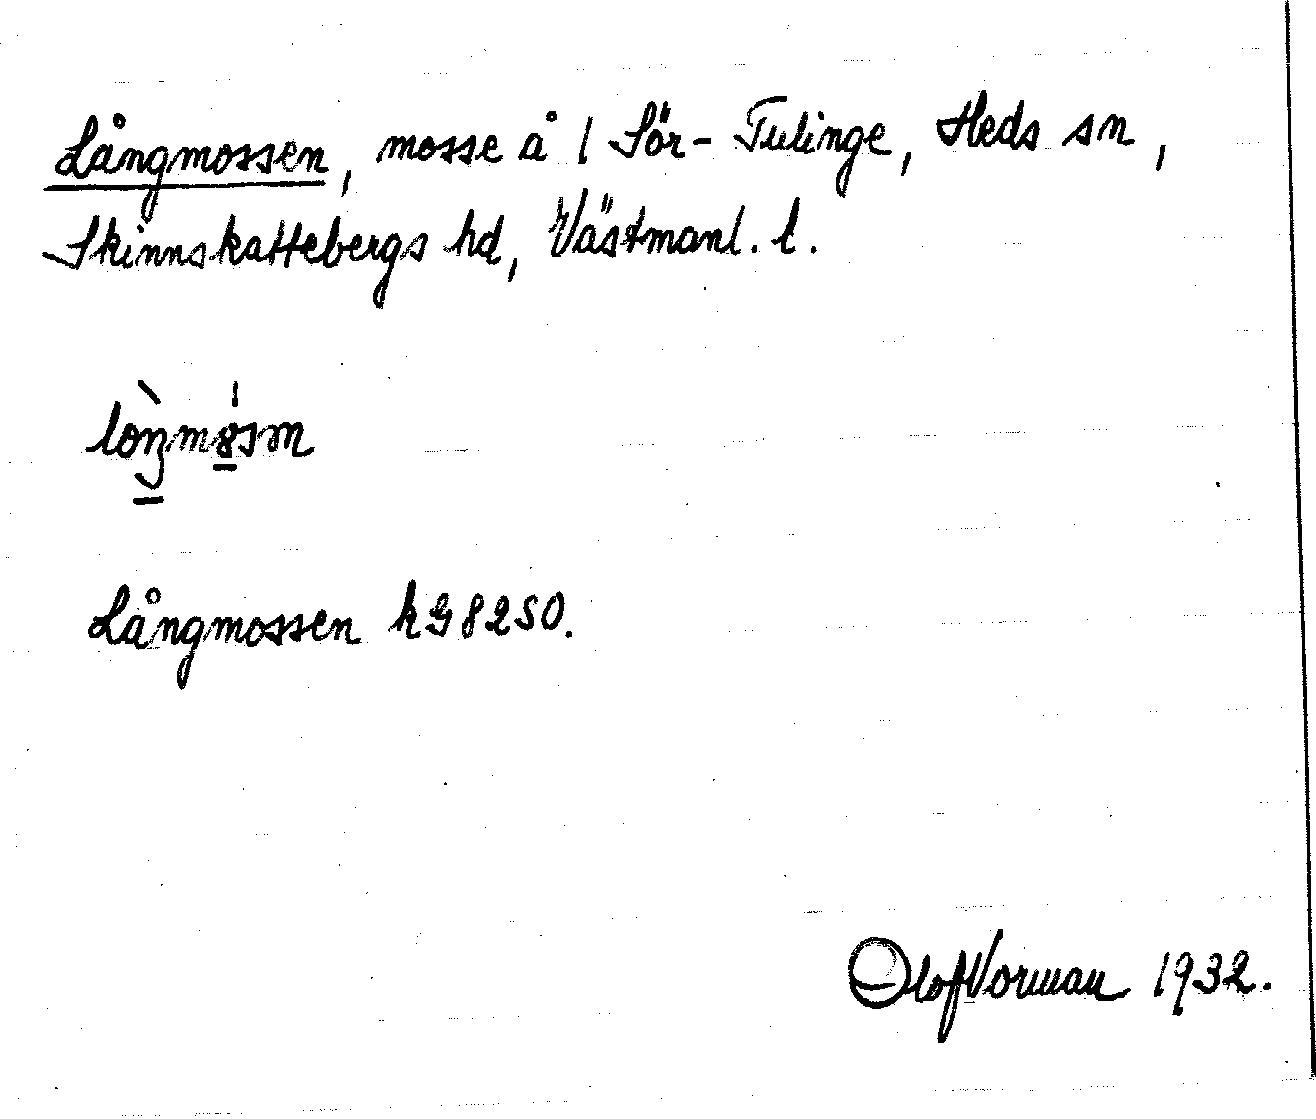 Långmossen, mosse å 1 Sör-Tulinge, Heds sn,
Skinnskattebergs hd, Västmanl. l.
Långmossen kG 8250.
Olof Vorman 1932.